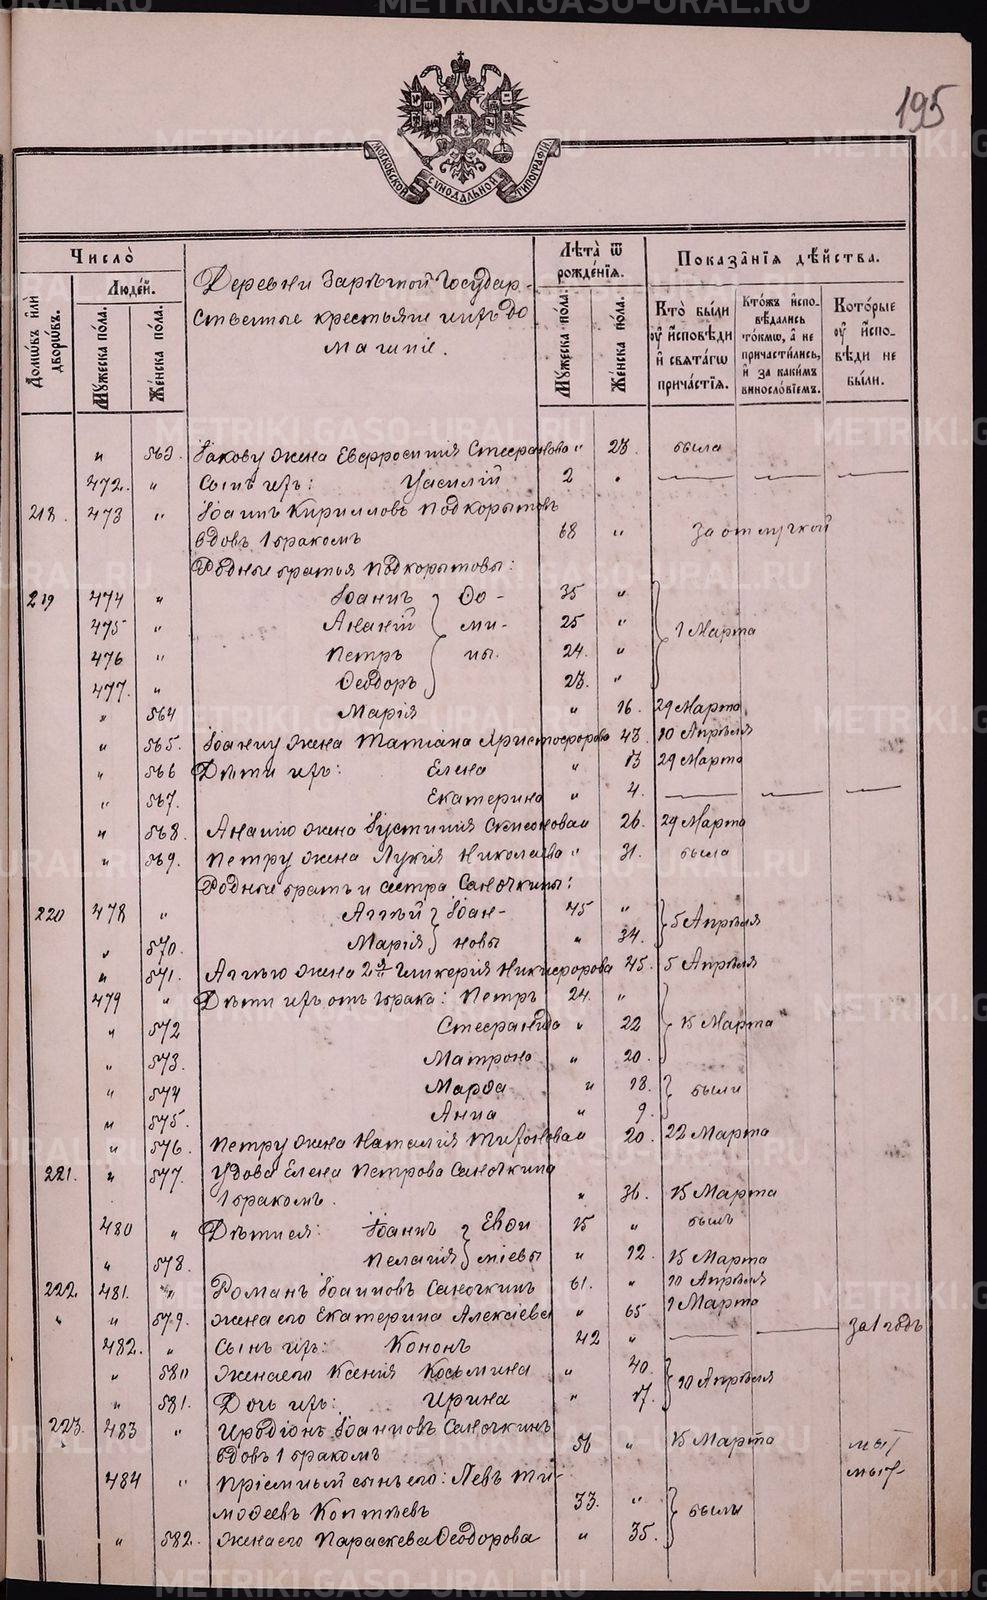 METRIKI.GASO-URAL.RU
195
МОСКОВСКОЙ СѴНОДАЛЬНОЙ ТИПОГРАФІИ
Число̀
Люде́й.
Домѡвъ и҆лѝ дворѡвъ.
Мꙋ́жеска по́ла.
Же́нска по́ла.
Деревни Зарѣчной Государ-
ственные крестьяне и ихъ до
машніе.
Лѣ́та ѿ рожде́нїѧ.
Мꙋ́жеска по́ла.
Же́нска по́ла.
Показа̑нїѧ дѣ́йства.
Кто̀ бы́ли оу҆ и҆́сповѣди и҆ свѧта́гѡ прича́стїѧ.
Кто́жъ и҆сповѣ́дались то́кмѡ, а҆ не причасти́лись, и҆ за каки́мъ винослові́емъ.
Кото́рые оу҆ и҆́сповѣди не бы́ли.
" 563. Іакову жена Евфросинія Стефанова " 23 была
472. " Сынъ ихъ: Василій 2 "
218. 473 " Іоаннъ Кирилловъ Подкорытовъ
вдовъ 1 бракомъ 68 " За отлучкой
Родные братья Подкорытовы:
219 474 " Іоаннъ } Ѳо- 35 "
475 " Ананій } ми- 25 " } 1 Марта
476 " Петръ } ны. 24. "
477. " Ѳеодоръ } 23. "
" 564 Марія " 16. 29 Марта
" 565. Іоанну жена Татіана Христофорова 43. 10 Апрѣля
" 566 Дѣти ихъ: Елена " 13 29 Марта
" 567. Екатерина " 4.
" 568. Ананію жена Іустинія Симеонова " 26. 29 Марта
" 569. Петру жена Лукія Николаева " 31. была
Родные братъ и сестра Саночкины:
220 478 " Аггѣй } Іоан- 45 " } 5 Апрѣля
" 570. Марія } новы " 34.
" 571. Аггѣю жена 2я Гликерія Никифорова 45. 5 Апрѣля
479 " Дѣти ихъ отъ 1 брака: Петръ 24. "
" 572 Стефанида " 22 } 15 Марта
" 573. Матрона " 20.
" 574 Марѳа " 18. } были
" 575. Анна " 9.
" 576. Петру жена Наталія Тихонова " 20. 22 Марта
221. " 577. Вдова Елена Петрова Саночкина
1 бракомъ. " 36. 15 Марта
480 " Дѣти ея: Іоаннъ } Евѳи 15 " былъ
" 578. Пелагія } міевы " 12. 15 Марта
222. 481. " Романъ Іоанновъ Саночкинъ 61. " 10 Апрѣля
" " 579. Жена его Екатерина Алексіева " 65 1 Марта
482. " Сынъ ихъ: Кононъ 42 " за 1 годъ
" 580 Жена его Ксенія Косьмина " 40. } 10 Апрѣля
" 581. Дочь ихъ: Ирина " 17.
223. 483 " Иродіонъ Іоанновъ Саночкинъ
вдовъ 1 бракомъ 56 " 15 Марта
484 " Пріемный сынъ его: Левъ Ти-
моѳеевъ Коптѣевъ 33. " } были
" 582. Жена его Параскева Ѳеодорова " 35.